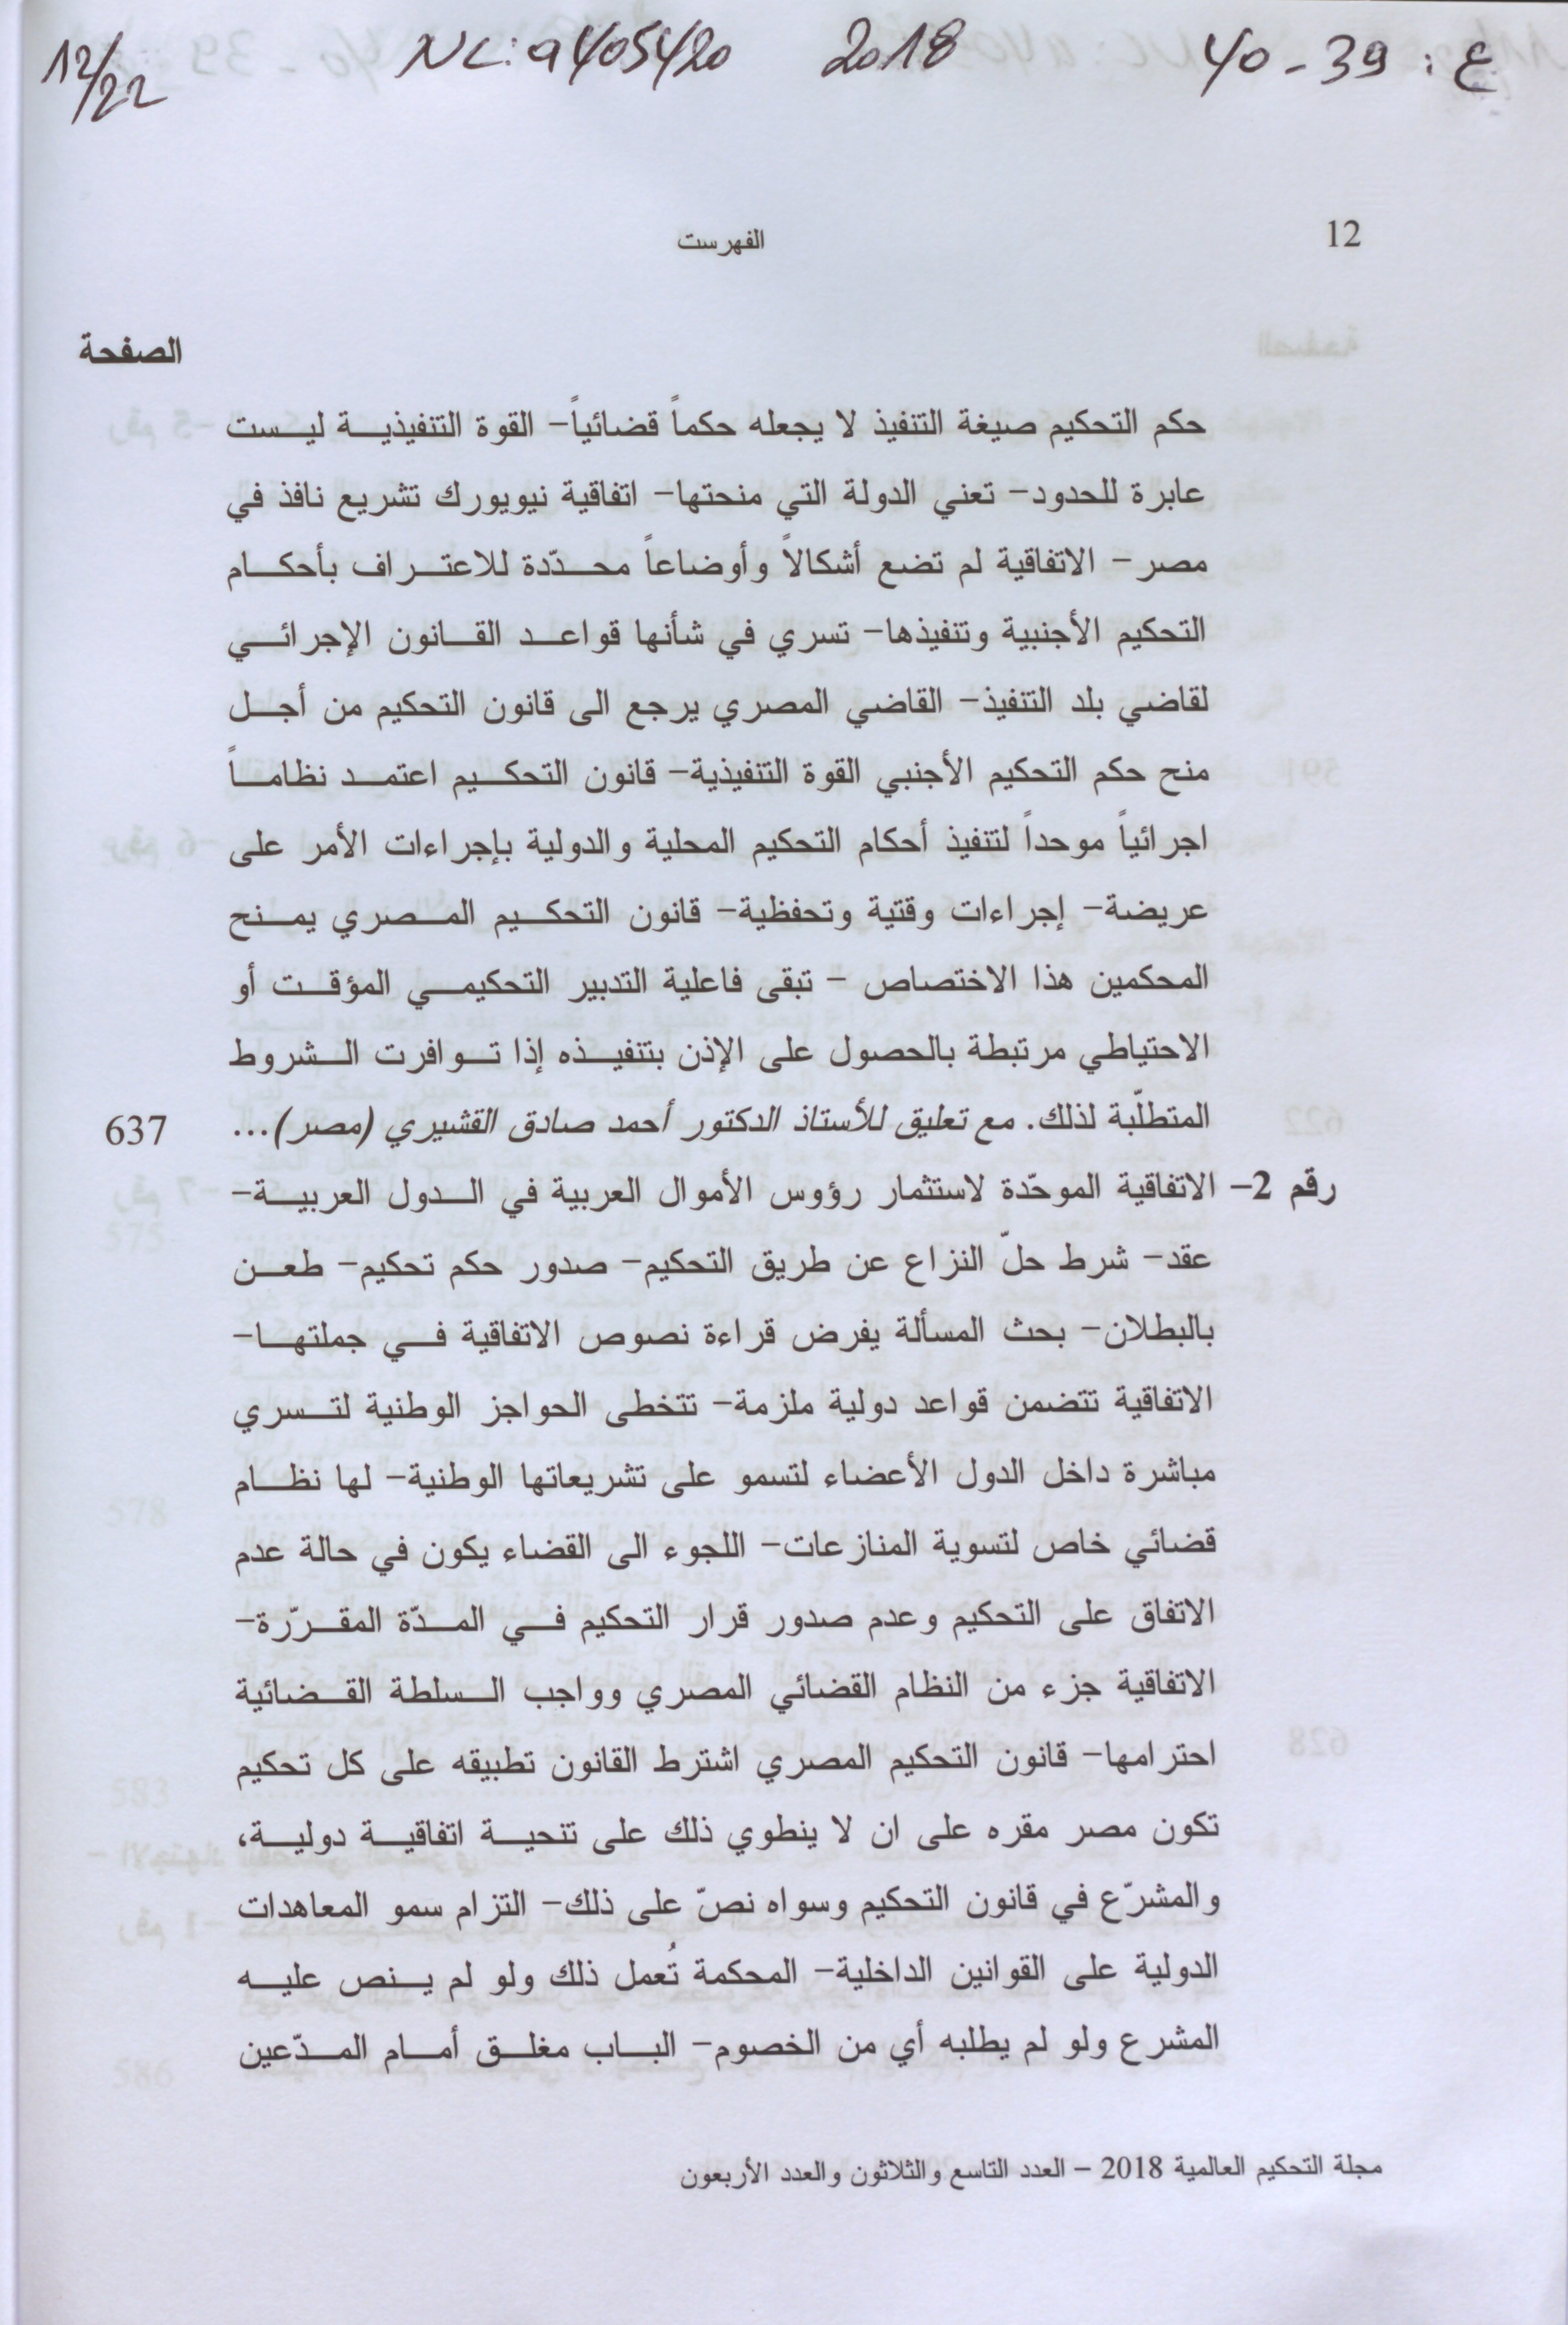 ع: 39 - 40 2018 NL: a405420 12/22
12 الفهرست
الصفحة
حكم التحكيم صيغة التنفيذ لا يجعله حكماً قضائياً- القوة التنفيذية ليست
عابرة للحدود- تعني الدولة التي منحتها- اتفاقية نيويورك تشريع نافذ في
مصر- الاتفاقية لم تضع أشكالاً وأوضاعاً محدّدة للاعتراف بأحكام
التحكيم الأجنبية وتنفيذها- تسري في شأنها قواعد القانون الإجرائي
لقاضي بلد التنفيذ- القاضي المصري يرجع الى قانون التحكيم من أجل
منح حكم التحكيم الأجنبي القوة التنفيذية- قانون التحكيم اعتمد نظاماً
اجرائياً موحداً لتنفيذ أحكام التحكيم المحلية والدولية بإجراءات الأمر على
عريضة- إجراءات وقتية وتحفظية- قانون التحكيم المصري يمنح
المحكمين هذا الاختصاص - تبقى فاعلية التدبير التحكيمي المؤقت أو
الاحتياطي مرتبطة بالحصول على الإذن بتنفيذه إذا توافرت الشروط
المتطلّبة لذلك. مع تعليق للأستاذ الدكتور أحمد صادق القشيري (مصر)... 637
رقم 2- الاتفاقية الموحّدة لاستثمار رؤوس الأموال العربية في الدول العربية-
عقد- شرط حلّ النزاع عن طريق التحكيم- صدور حكم تحكيم- طعن
بالبطلان- بحث المسألة يفرض قراءة نصوص الاتفاقية في جملتها-
الاتفاقية تتضمن قواعد دولية ملزمة- تتخطى الحواجز الوطنية لتسري
مباشرة داخل الدول الأعضاء لتسمو على تشريعاتها الوطنية- لها نظام
قضائي خاص لتسوية المنازعات- اللجوء الى القضاء يكون في حالة عدم
الاتفاق على التحكيم وعدم صدور قرار التحكيم في المدّة المقرّرة-
الاتفاقية جزء من النظام القضائي المصري وواجب السلطة القضائية
احترامها- قانون التحكيم المصري اشترط القانون تطبيقه على كل تحكيم
تكون مصر مقره على ان لا ينطوي ذلك على تتحية اتفاقية دولية،
والمشرّع في قانون التحكيم وسواه نصّ على ذلك- التزام سمو المعاهدات
الدولية على القوانين الداخلية- المحكمة تُعمل ذلك ولو لم ينص عليه
المشرع ولو لم يطلبه أي من الخصوم- الباب مغلق أمام المدّعين
مجلة التحكيم العالمية 2018 - العدد التاسع والثلاثون والعدد الأربعون